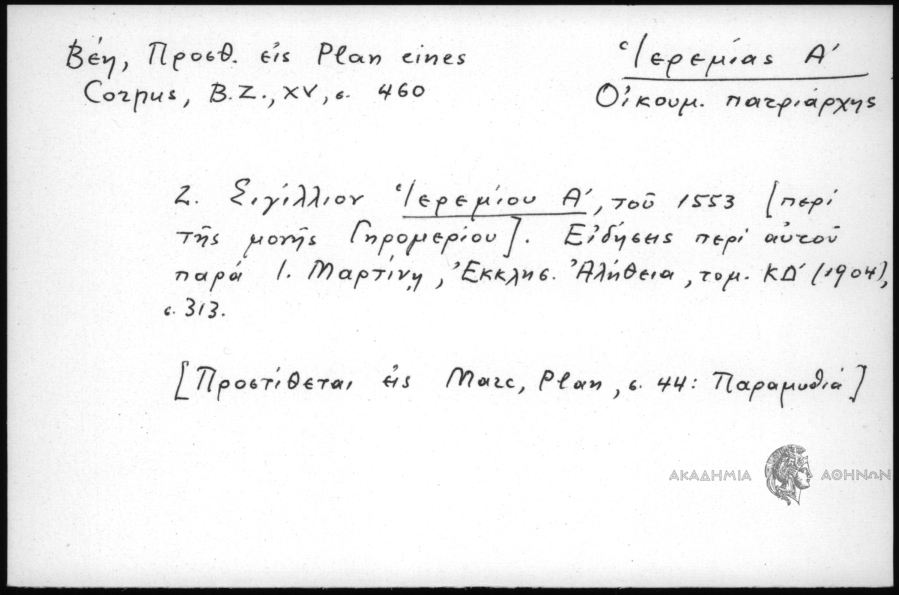 Βέη, Προσθ. εἰς Plan eines
Corpus, B.Z., XV, σ. 460
Ἱερεμίας Α´
Οἰκουμ. πατριάρχης
2. Σιγίλλιον Ἱερεμίου Α´, τοῦ 1553 [περί
τῆς μονῆς Γηρομερίου]. Εἰδήσεις περί αὐτοῦ
παρά Ι. Μαρτίνῃ, Ἐκκλησ. Ἀλήθεια, τομ. ΚΔ´ (1904),
σ. 313.
[Προστίθεται εἰς Marc, Plan, σ. 44: Παραμυθιά]
ΑΚΑΔΗΜΙΑ ΑΘΗΝΩΝ